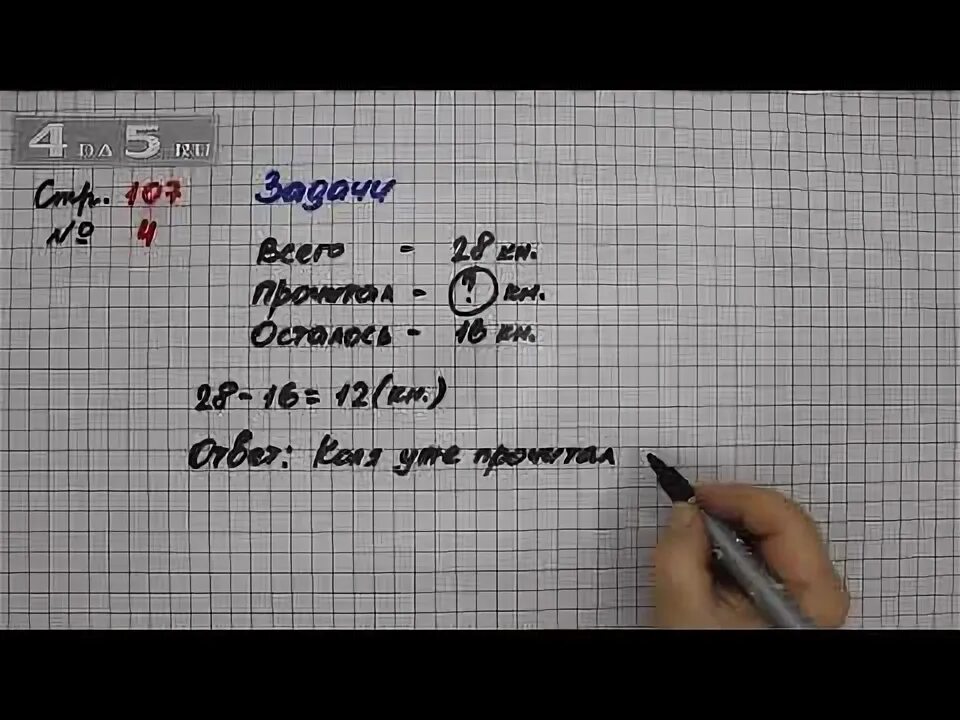 4 на 5.ru
Стр. 107 Задачи
№ 4
Всего - 28 кн.
Прочитал - ? кн.
Осталось - 16 кн.
28 - 16 = 12 (кн.)
Ответ: Коля уже прочитал